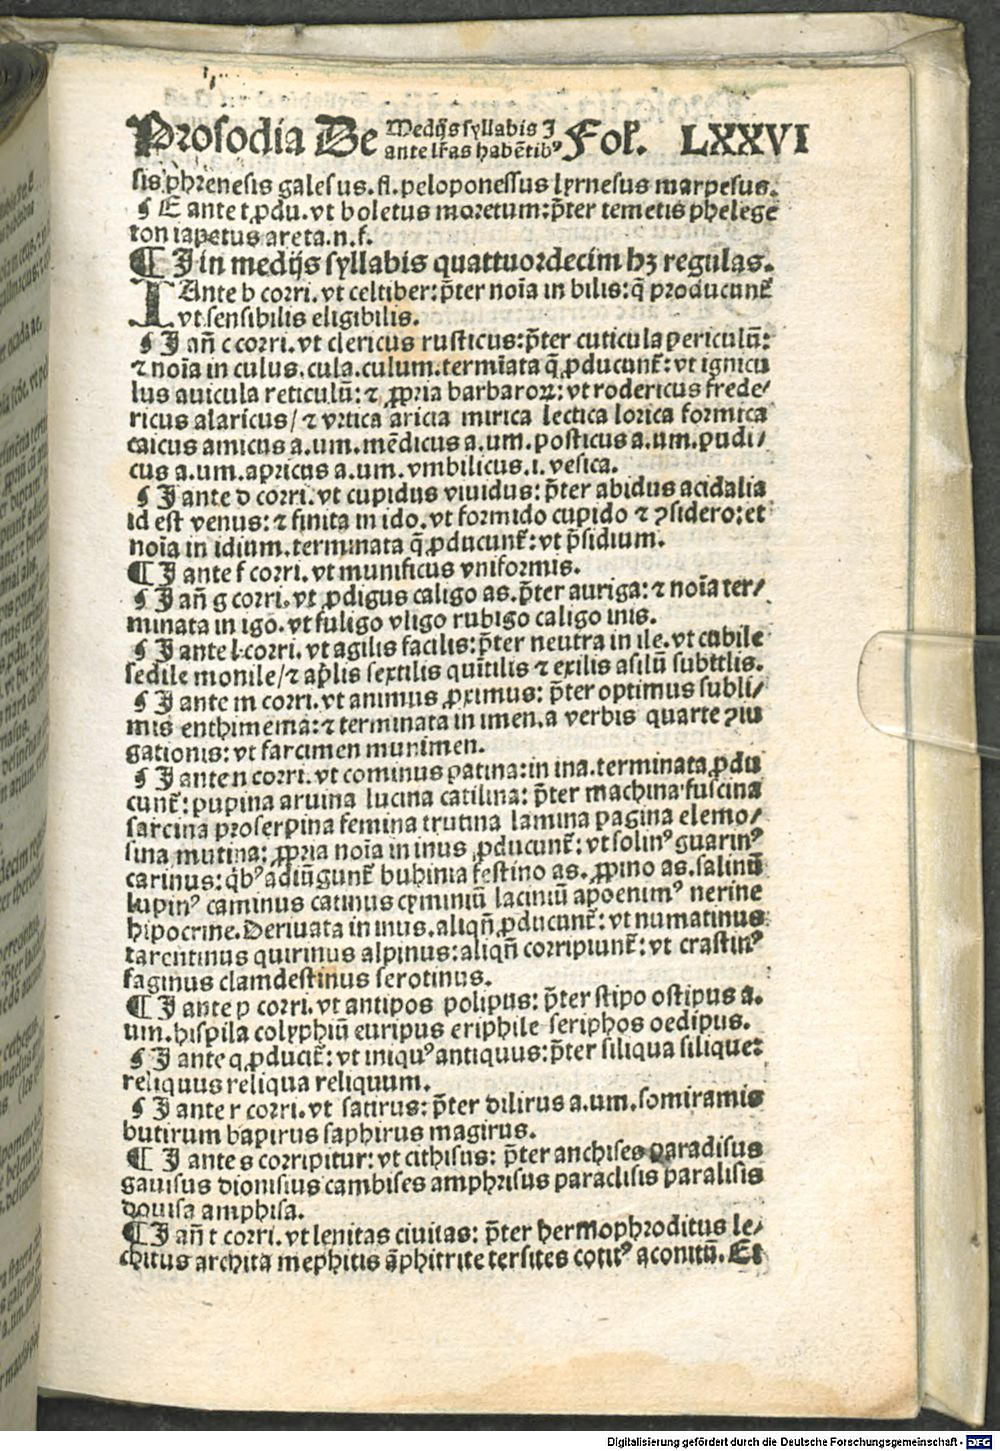 Prosodia De Medijs syllabis I Fol. LXXVI
ante lr̃as habẽtibꝰ
sis phrenesis galesus. fl. peloponessus lyrnesus marpesus.
¶ E ante t ꝓdu. vt boletus moretum: p̃ter temetis phelege
ton iapetus areta. n. f.
¶ I in medijs syllabis quattuordecim hꝫ regulas.
I Ante b corri. vt celtiber: p̃ter noĩa in bilis: q̃ producunt̃
vt sensibilis eligibilis.
¶ I añ c corri. vt clericus rusticus: p̃ter cuticula periculũ:
⁊ noĩa in culus. cula. culum. termĩata q̃ ꝓducunt̃: vt ignicu
lus auicula reticulũ: ⁊ ꝓpria barbaroꝝ: vt rodericus frede/
ricus alaricus/ ⁊ vrtica aricia mirica lectica lorica formica
caicus amicus a. um. mẽdicus a. um. posticus a. um. pudi/
cus a. um. apricus a. um. vmbilicus. i. vesica.
¶ I ante d corri. vt cupidus viuidus: p̃ter abidus acidalia
id est venus: ⁊ finita in ido. vt formido cupido ⁊ ꝯsidero: et
noĩa in idium. terminata q̃ ꝓducunt̃: vt p̃sidium.
¶ I ante f corri. vt munificus vniformis.
¶ I añ g corri. vt ꝓdigus caligo as. p̃ter auriga: ⁊ noĩa ter/
minata in igo. vt fuligo vligo rubigo caligo inis.
¶ I ante l corri. vt agilis facilis: p̃ter neutra in ile. vt cubile
sedile monile/ ⁊ ap̃lis sextilis quĩtilis ⁊ exilis asilũ subttlis.
¶ I ante m corri. vt animus ꝓximus: p̃ter optimus subli/
mis enthimema: ⁊ terminata in imen. a verbis quarte ꝯiu
gationis: vt farcimen munimen.
¶ I ante n corri. vt cominus patina: in ina. terminata ꝓdu
cunt̃: pupina aruina lucina catilina: p̃ter machina fuscina
sarcina proserpina femina trutina lamina pagina elemo/
sina mutina: ꝓpria noĩa in inus ꝓducunt̃: vt solinꝰ guarinꝰ
carinus: q̃bꝰ adiũgunt̃ buhinia festino as. ꝓpino as. salinũ
lupinꝰ caminus catinus cyminiũ laciniũ apoenimꝰ nerine
hipocrine. Deriuata in inus. aliqñ ꝓducunt̃: vt numatinus
tarentinus quirinus alpinus: aliqñ corripiunt̃: vt crastinꝰ
faginus clamdestinus serotinus.
¶ I ante p corri. vt antipos polipus: p̃ter stipo ostipus a.
um. hispila colyphiũ euripus eriphile seriphos oedipus.
¶ I ante q ꝓducit̃: vt iniquꝰ antiquus: p̃ter siliqua silique:
reliquus reliqua reliquum.
¶ I ante r corri. vt satirus: p̃ter dilirus a. um. somiramis
butirum bapirus saphirus magirus.
¶ I ante s corripitur: vt cithisus: p̃ter anchises paradisus
gauisus dionisius cambises amphrisus paraclisis paralisis
douisa amphisa.
¶ I añ t corri. vt lenitas ciuitas: p̃ter hermophroditus le/
chitus archita mephitis ãphitrite tersites cotitꝰ aconitũ. Et
Digitalisierung gefördert durch die Deutsche Forschungsgemeinschaft - DFG